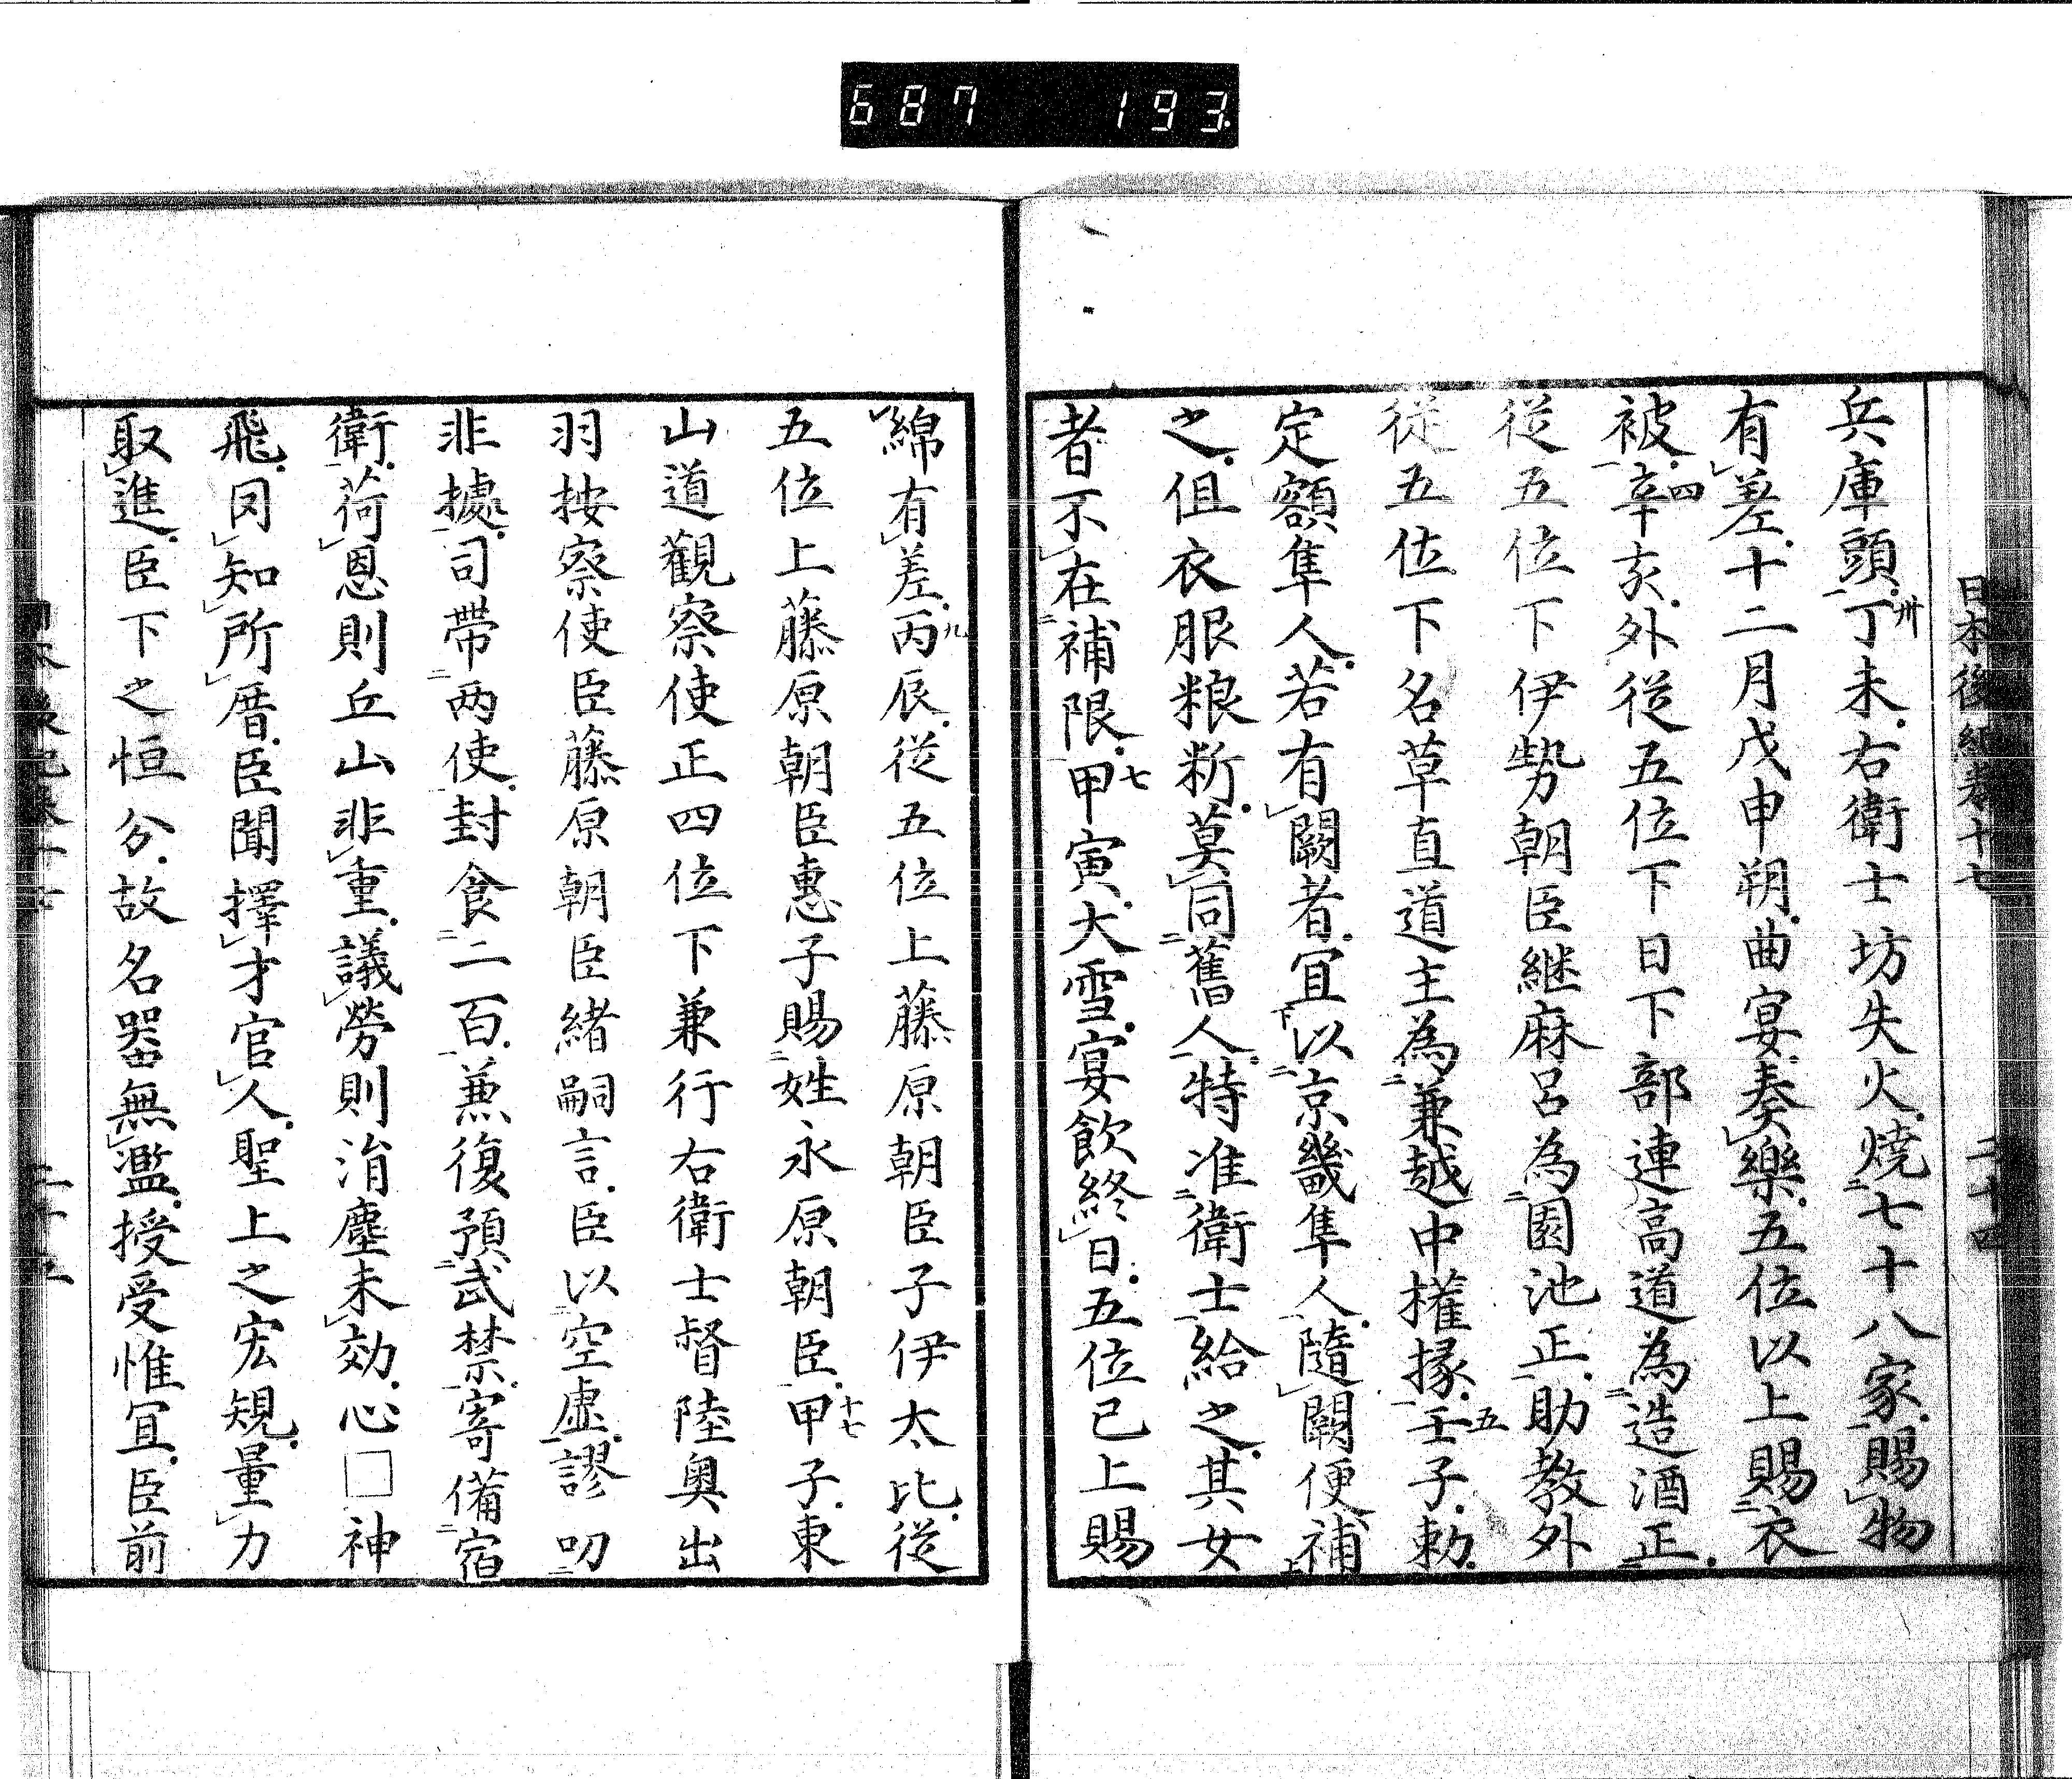 687 193
日本後紀卷十七 二十四
兵庫頭丁未右衛士坊失火燒七十八家賜物
有差十二月戊申朔曲宴奏樂五位以上賜衣
被辛亥外從五位下日下部連高道為造酒正
從五位下伊勢朝臣継麻呂為園池正助教外
從五位下名草直道主為兼越中權掾壬子勅
定額隼人若有闕者宜以京畿隼人隨闕便補
之但衣服粮斫莫同舊人特准衛士給之其女
者不在補限甲寅大雪宴飲終日五位已上賜
綿有差丙辰從五位上藤原朝臣子伊太比從
五位上藤原朝臣惠子賜姓永原朝臣甲子東
山道觀察使正四位下兼行右衛士督陸奧出
羽按察使臣藤原朝臣緒嗣言臣以空虛謬叨
非據司帶両使封食二百兼復預武禁寄備宿
衛荷恩則丘山非重議勞則涓塵未効心□神
飛罔知所厝臣聞擇才官人聖上之宏規量力
取進臣下之恒分故名器無濫授受惟宜臣前